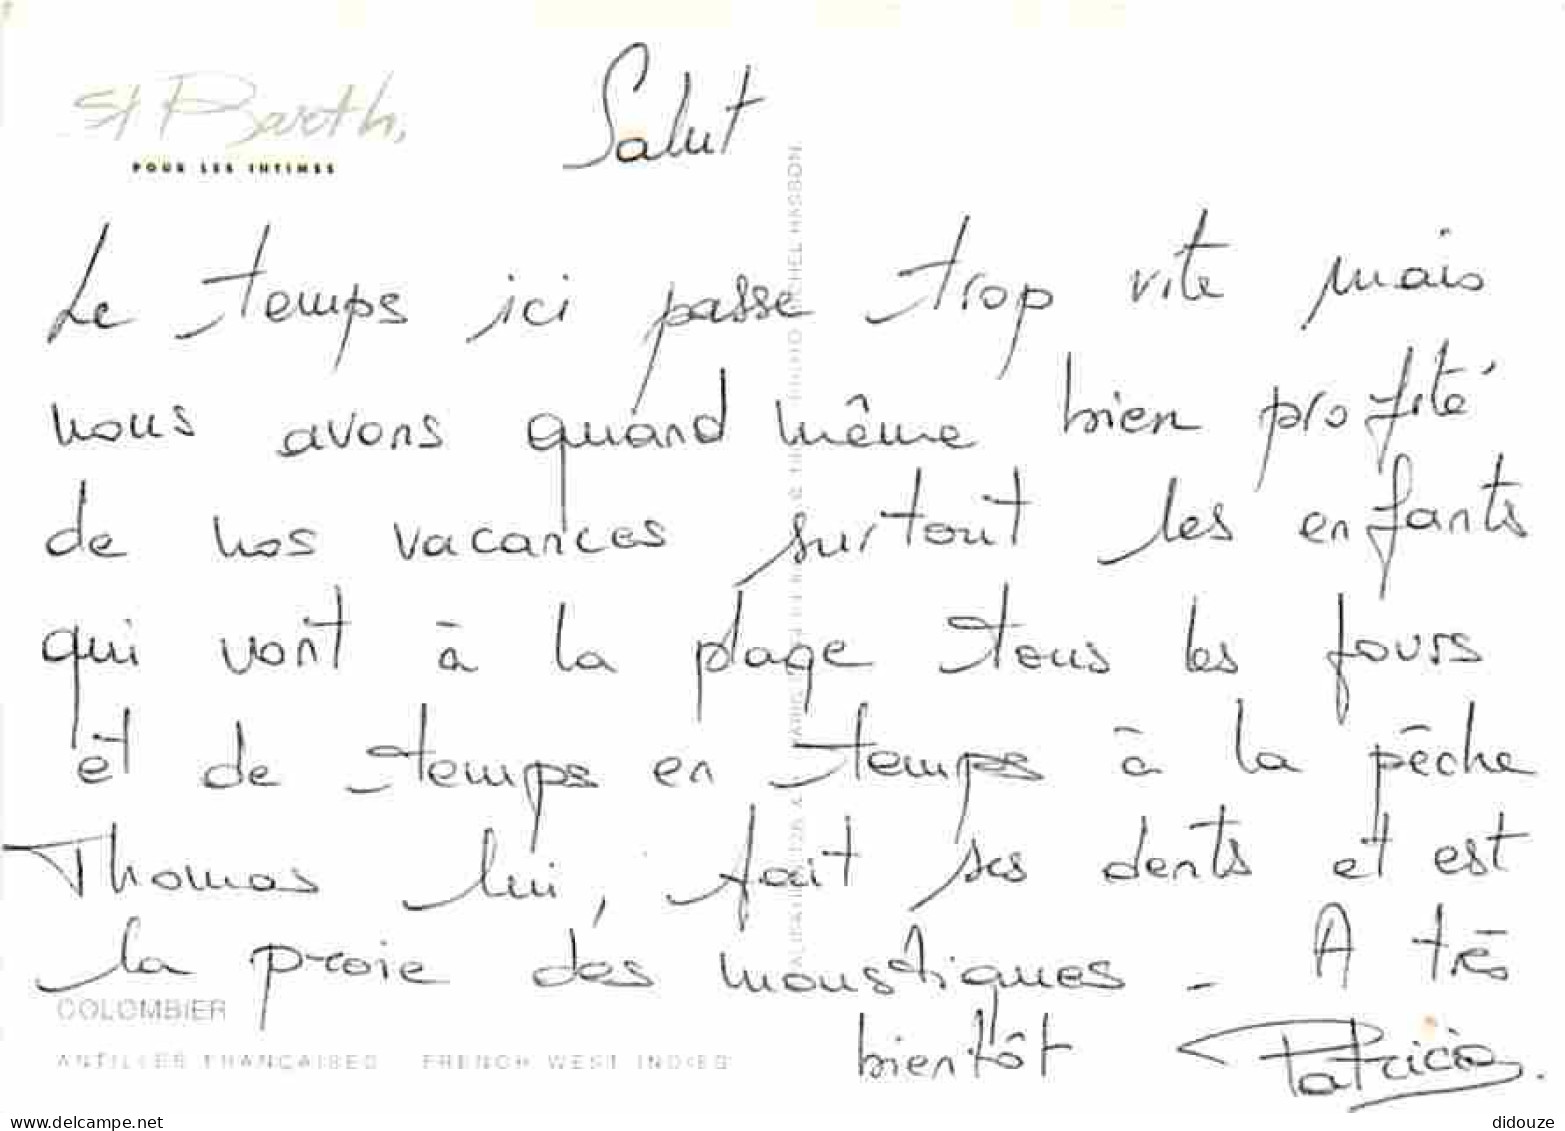 St Barth,
POUR LES INTIMES
Salut
Le temps ici passe trop vite mais
nous avons quand même bien profité
de nos vacances surtout les enfants
qui vont à la plage tous les jours
et de temps en temps à la pêche
Thomas lui, fait ses dents et est
la proie des moustiques - A très
bientôt Patricia.
COLOMBIER
ANTILLES FRANÇAISES FRENCH WEST INDIES
MICHEL HASSON
www.delcampe.net
didouze